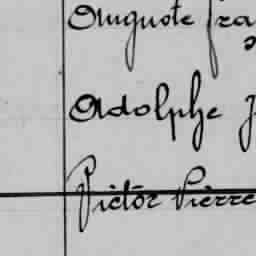 Auguste Fra
Adolphe J
Victor Pierre